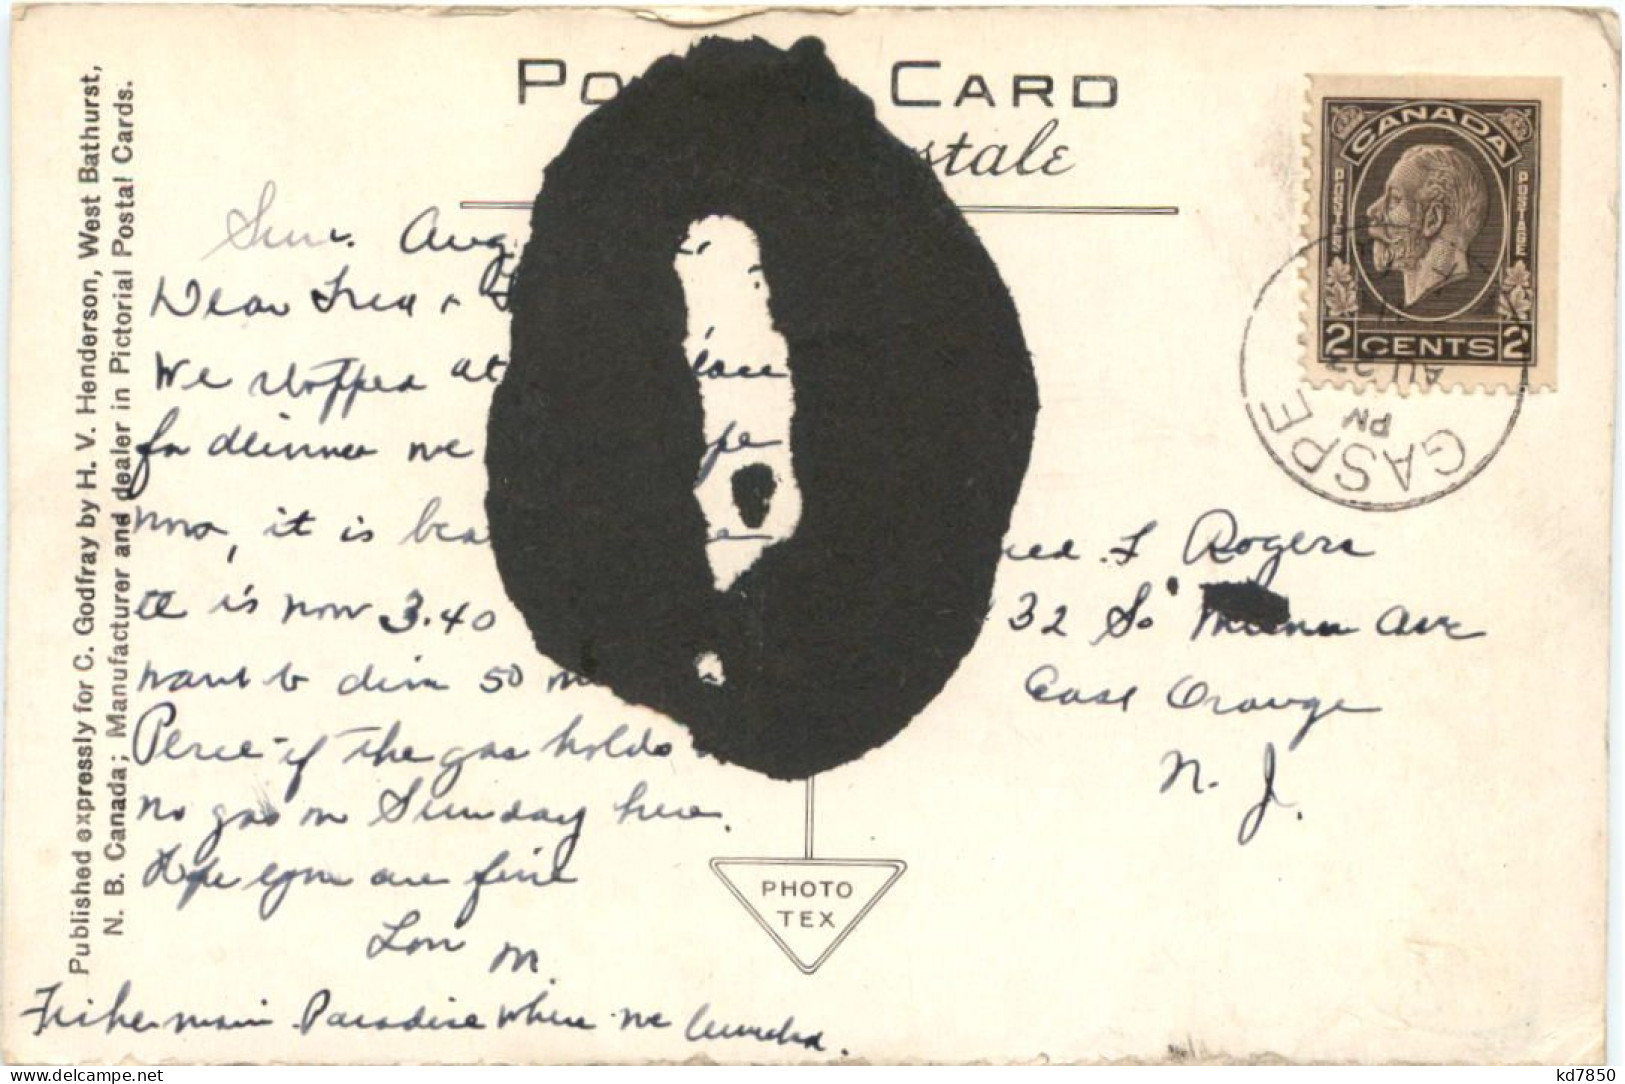 Published expressly for C. Godfray by H. V. Henderson, West Bathurst,
N. B. Canada; Manufacturer and dealer in Pictorial Postal Cards.
Po Card
stale
CANADA
POSTES POSTAGE
2 CENTS 2
GASPE
PM
AU 23
Sun. Aug
Dear Fred &
We stopped at
for dinner we
now, it is
It is now 3.40
want to dim 50
Perce if the gas holds
no gas on Sunday here.
Hope you are fine
Lon M.
Fisherman Paradise where we lunched.
red. F Rogers
32 So Munn Ave
East Orange
N. J.
PHOTO
TEX
kd7850